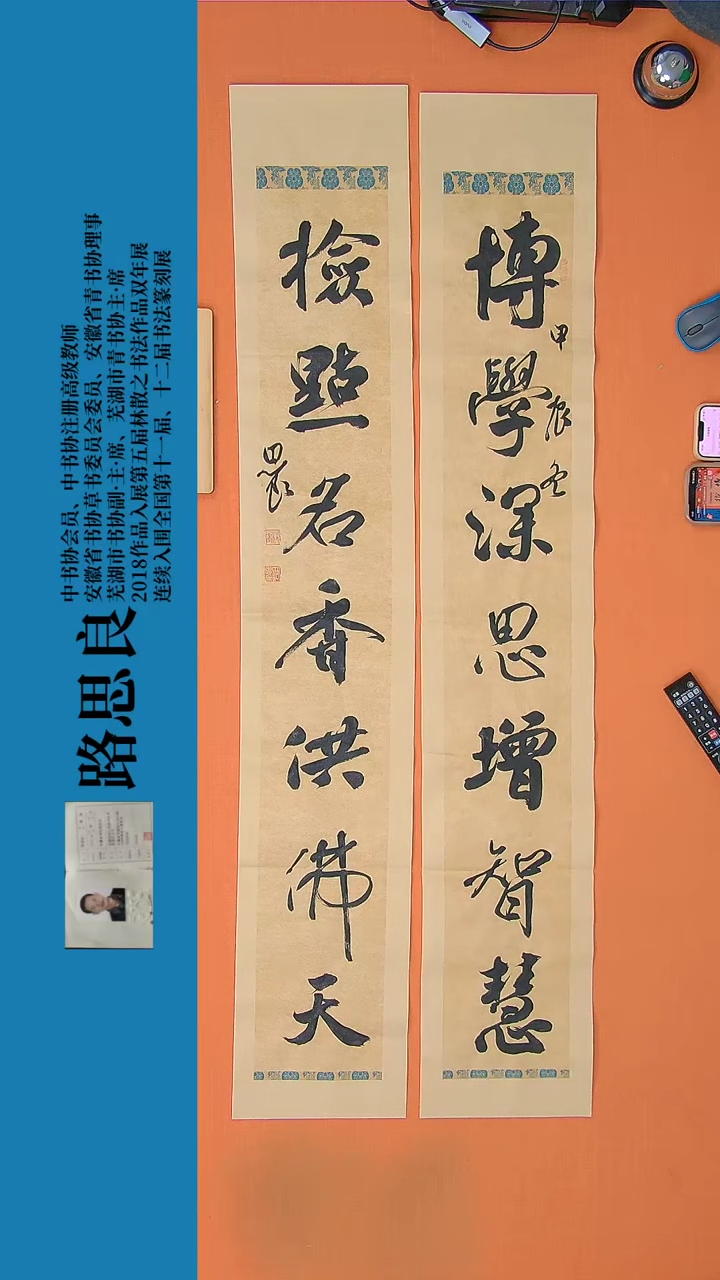 博學深思增智慧
甲辰冬
撿點名香洪佛天
思良
中书协会员、中书协注册高级教师
安徽省书协草书委员会委员、安徽省青书协理事
芜湖市书协副·主·席、芜湖市青书协主·席
2018作品入展第五届林散之书法作品双年展
连续入围全国第十一届、十二届书法篆刻展
路思良